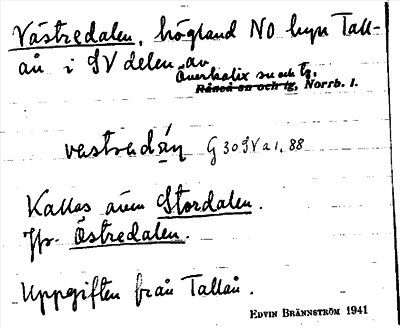 Västredalen, högland NO byn Tall-
ån i SV delen av
Överkalix sn och tg.
Råneå sn och tg, Norrb. l.
vastradán G 30 SV a 1, 88
Kallas även Stordalen.
Jfr Östredalen.
Uppgiften från Tallån.
EDVIN BRÄNNSTRÖM 1941